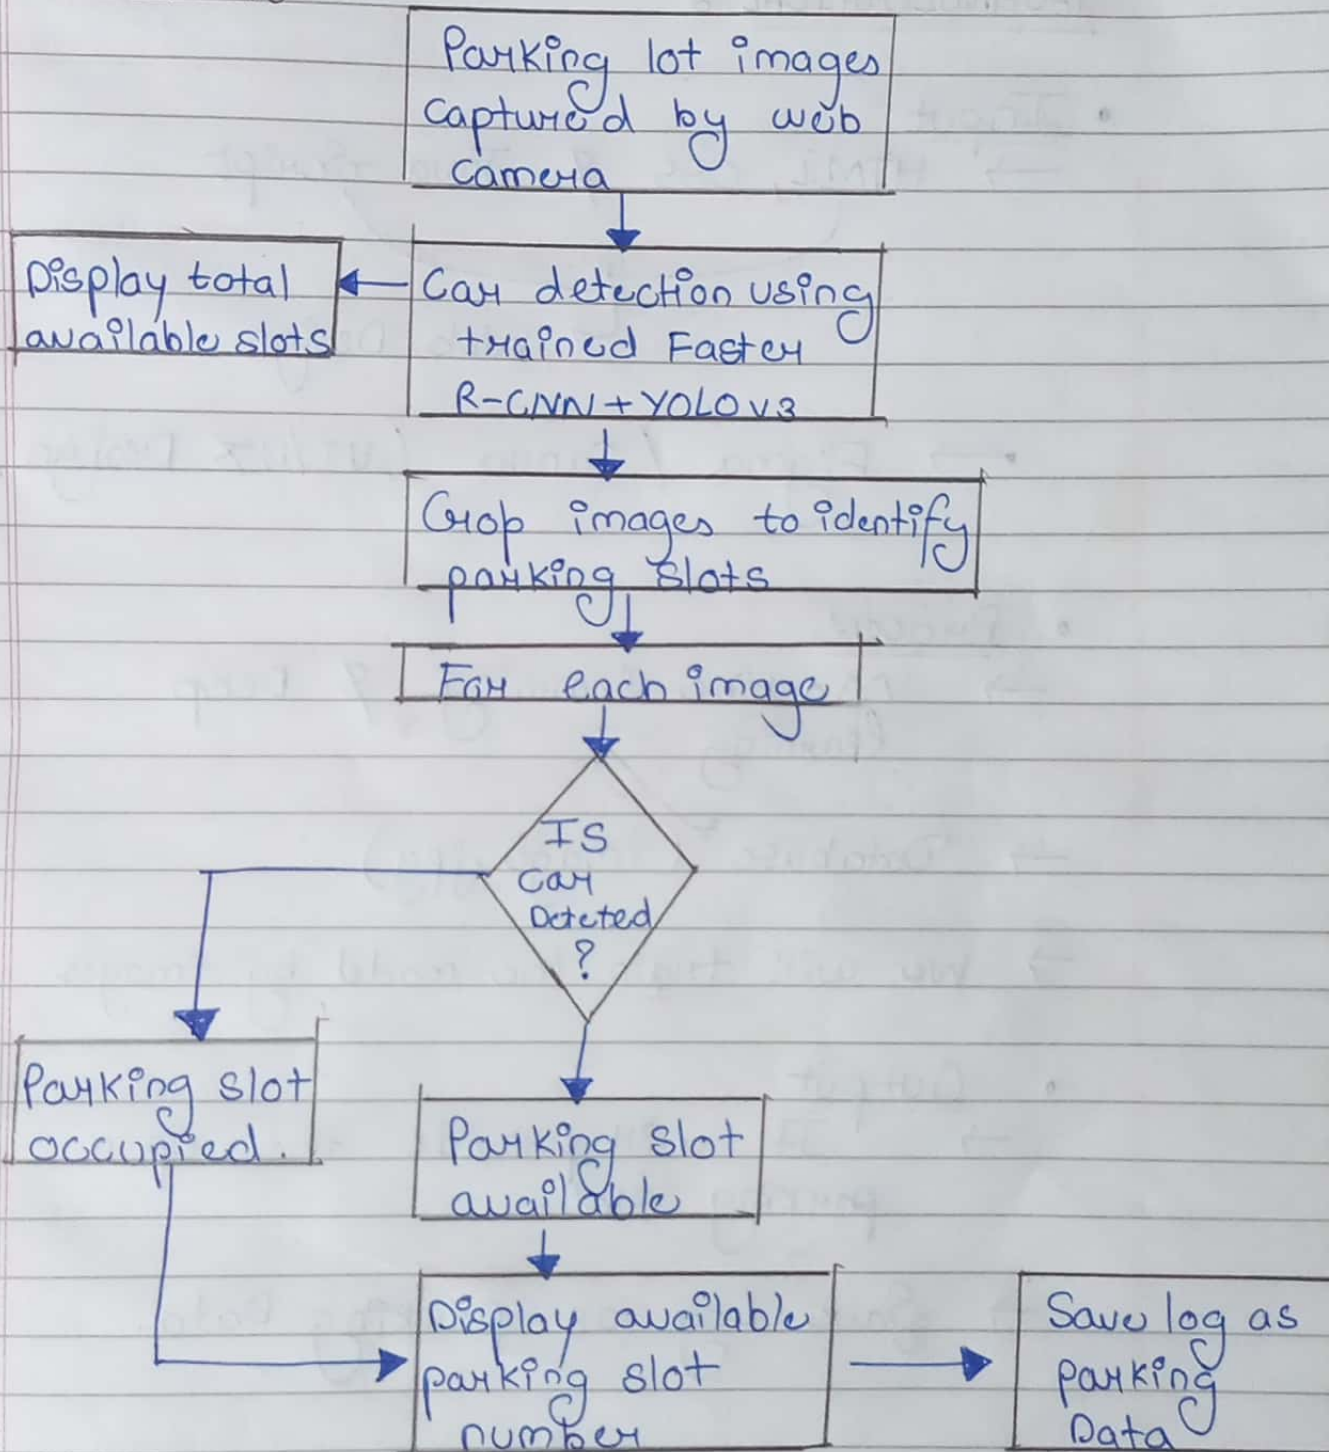 Parking lot images
captured by web
camera
Display total
available slots
Car detection using
trained Faster
R-CNN+YOLOv3
Crop images to identify
parking slots
For each image
IS
car
Deteted
?
Parking slot
occupied.
Parking slot
available
Display available
parking slot
number
Save log as
parking
Data